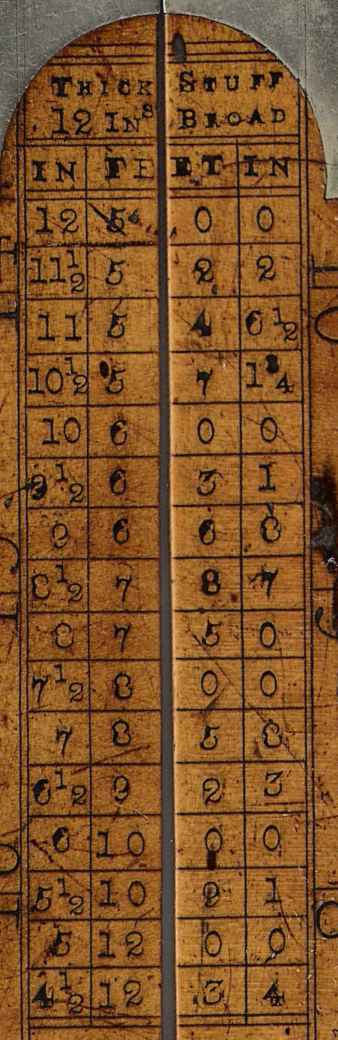 THICK STUFF
12 INS BROAD
IN FEET IN
12 5 0 0
11 1/2 5 2 2
11 5 4 6 1/2
10 1/2 5 7 1 3/4
10 6 0 0
9 1/2 6 3 1
9 6 6 8
8 1/2 7 8 7
8 7 5 0
7 1/2 8 0 0
7 8 5 8
6 1/2 9 2 3
6 10 0 0
5 1/2 10 9 1
5 12 0 0
4 1/2 12 3 4